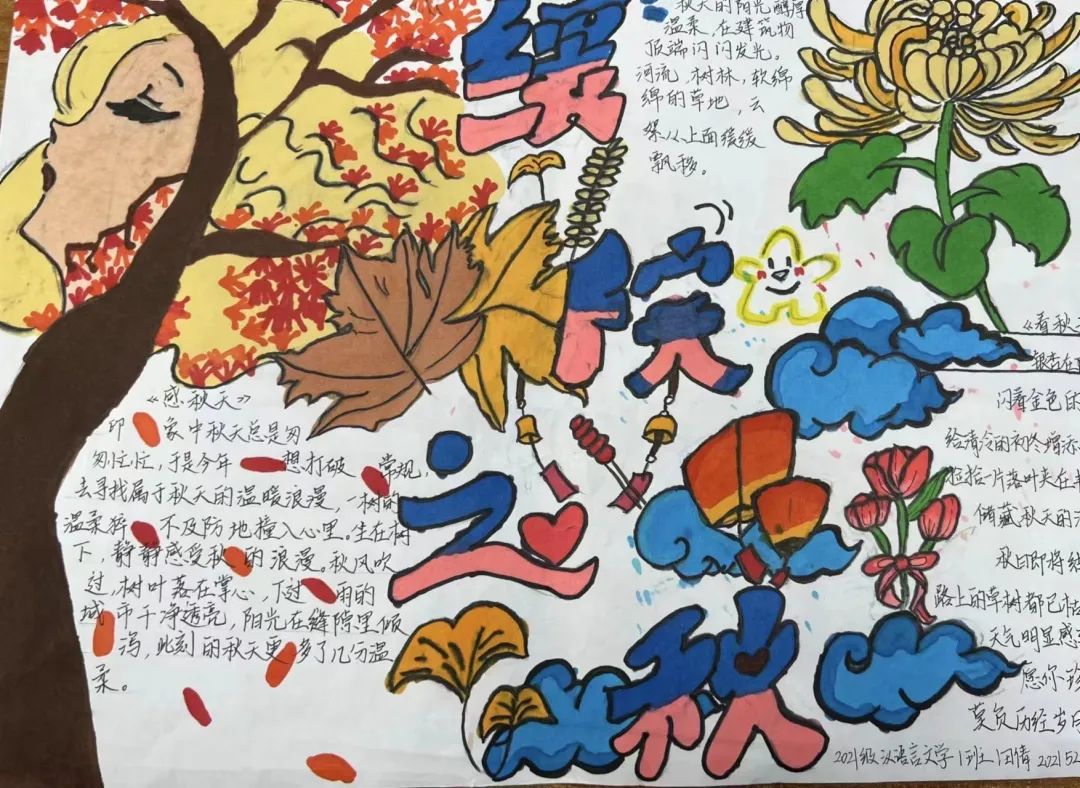 绽
之
秋
秋天的阳光醇厚
温柔，在建筑物
顶端闪闪发光。
河流，树林，软绵
绵的草地，云
朵从上面缓缓
飘移。
《感秋天》
印象中秋天总是匆
匆忙忙，于是今年想打破常规，
去寻找属于秋天的温暖浪漫，一树的
温柔猝不及防地撞入心里。坐在树
下，静静感受秋的浪漫。秋风吹
过，树叶落在掌心，下过雨的
城市干净透亮，阳光在缝隙里倾
泻，此刻的秋天更多了几分温
柔。
《看秋
银杏在
闪着金色的
给清冷的初冬增添
捡拾一片落叶夹在
储藏秋天的
秋日即将结
路上的草树都已枯
天气明显感
愿你珍
莫负历经岁
2021级汉语言文学1班 田倩 202152